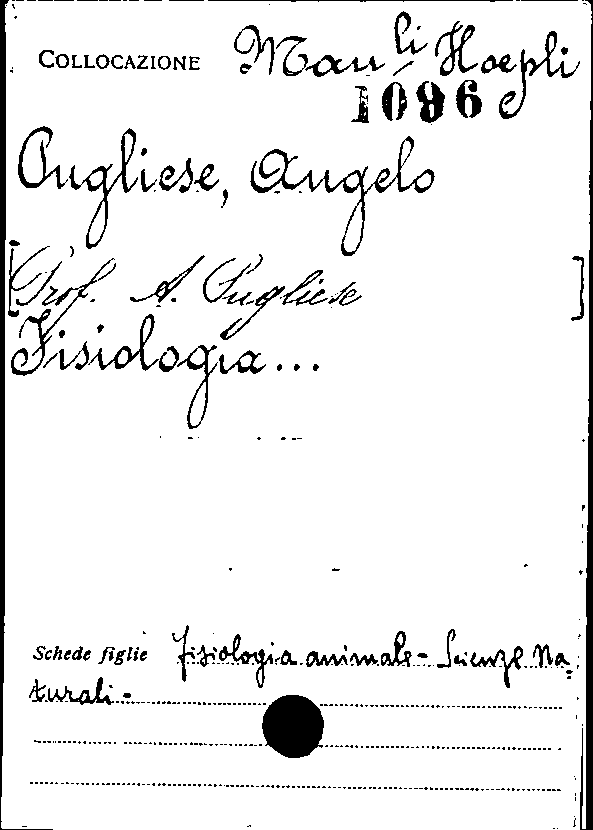 COLLOCAZIONE Man.li Hoepli
1096
Pugliese, Angelo
[Prof. A. Pugliese]
Fisiologia...
Schede figlie Fisiologia animale - Scienze Na=
turali -